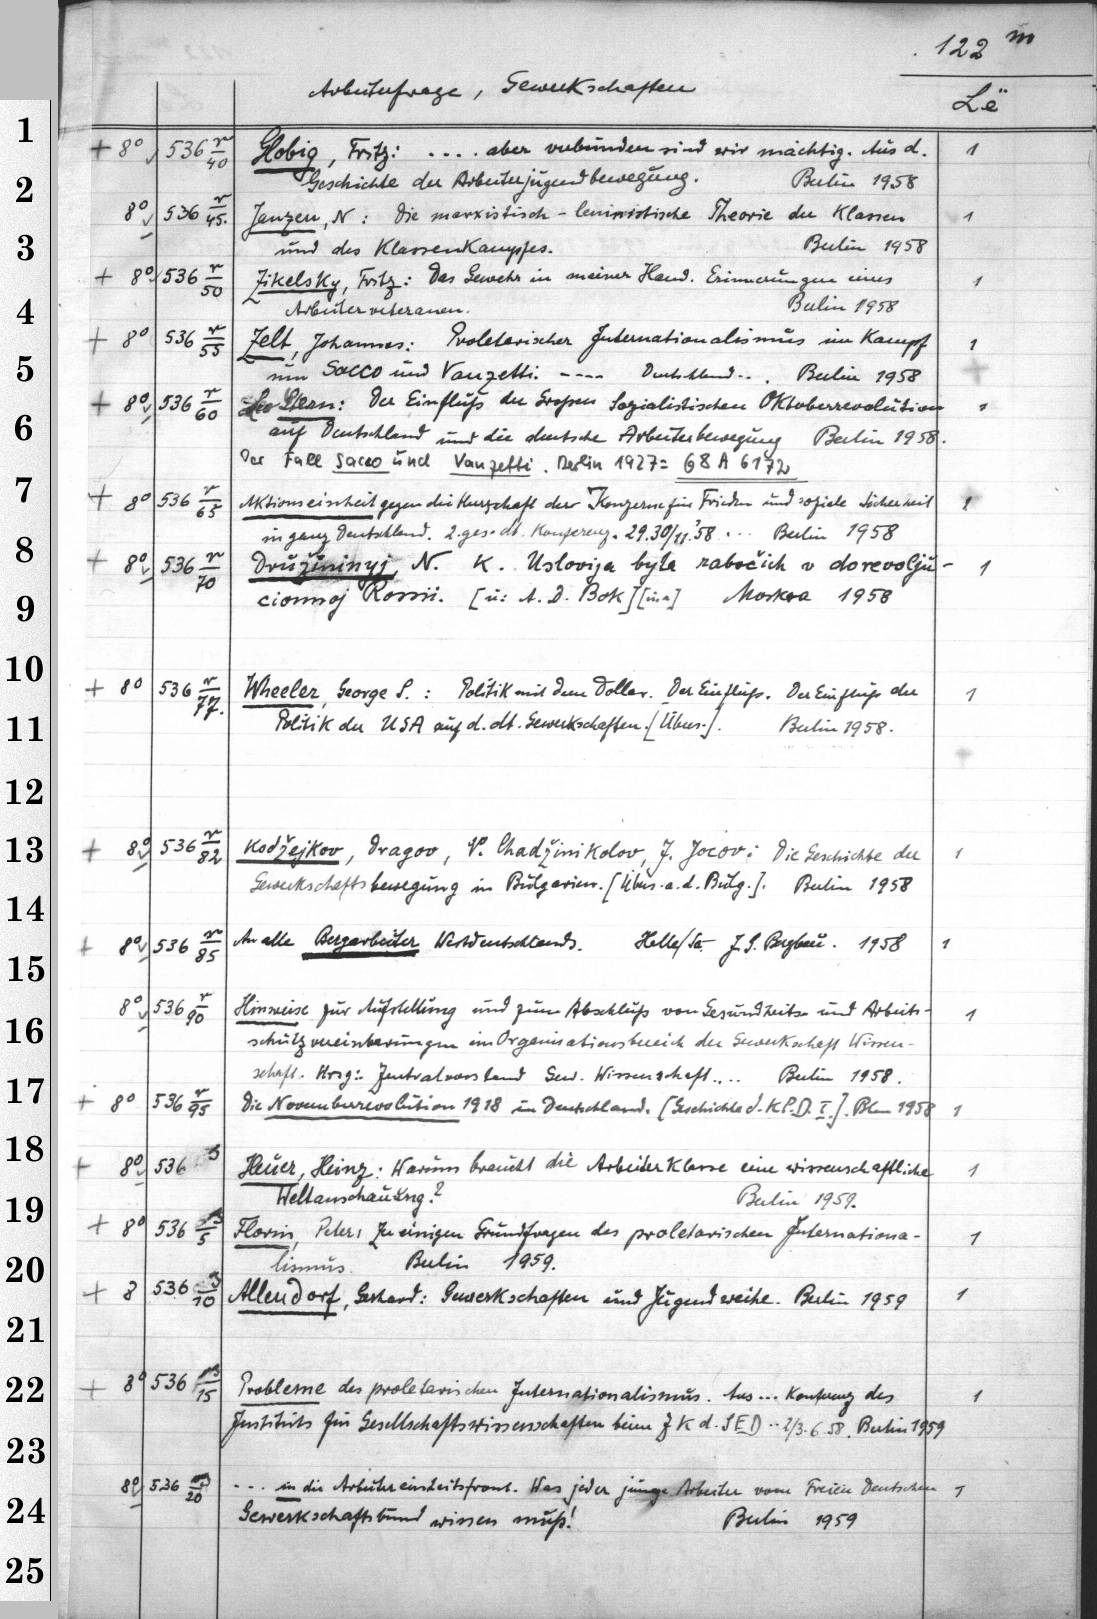 122 m
Arbeiterfrage, Gewerkschaften
Lë
1
+ 8° 536 r/40 Globig, Fritz: .... aber verbunden sind wir mächtig. Aus d. 1
2
Geschichte der Arbeiterjugendbewegung. Berlin 1958
8° 536 r/45. Janzen, N: Die marxistisch-leninistische Theorie der Klassen 1
3
und des Klassenkampfes. Berlin 1958
+ 8° 536 r/50 Zikelsky, Fritz: Das Gewehr in meiner Hand. Erinnerungen eines 1
4
Arbeiterveteranen. Berlin 1958
+ 8° 536 r/55 Zelt, Johannes: Proletarischer Internationalismus im Kampf 1
5
um Sacco und Vanzetti. ---- Deutschland... Berlin 1958
+ 8° 536 r/60 Leo Stern: Der Einfluß der Großen Sozialistischen Oktoberrevolution 1
6
auf Deutschland und die deutsche Arbeiterbewegung Berlin 1958.
Der Fall Sacco und Vanzetti. Berlin 1927= 68 A 6172
7
+ 8° 536 r/65 Aktionseinheit gegen die Herrschaft der Konzerne für Frieden und soziale Sicherheit 1
in ganz Deutschland. 2. ges. dt. Konferenz. 29.30/11.'58 ... Berlin 1958
8
+ 8° 536 r/70 Družininyj, N. K. Uslovija byta rabočich v dorevolju- 1
9
cionnoj Rossii. [u: A. D. Bok] [u.a] Moskva 1958
10
+ 8° 536 r/77. Wheeler, George S.: Politik mit dem Dollar. Der Einfluß. Der Einfluß der 1
11
Politik der USA auf d. dt. Gewerkschaften. [Übers.]. Berlin 1958.
12
13
+ 8° 536 r/82 Kodžejkov, Dragov, V. Chadžinikolov, J. Jocov: Die Geschichte der 1
Gewerkschaftsbewegung in Bulgarien. [Übers. a. d. Bulg.]. Berlin 1958
14
+ 8° 536 r/85 An alle Bergarbeiter Westdeutschlands. Halle/Sa. J. G. Bergbau. 1958 1
15
8° 536 r/90 Hinweise zur Aufstellung und zum Abschluß von Gesundheits- und Arbeits- 1
16
schutzvereinbarungen im Organisationsbereich der Gewerkschaft Wissen-
schaft. Hrsg: Zentralvorstand Gew. Wissenschaft.... Berlin 1958.
17
+ 8° 536 r/95 Die Novemberrevolution 1918 in Deutschland. [Geschichte d. K.P.D. I.]. Bln 1958 1
18
+ 8° 536 s Heuer, Heinz: Warum braucht die Arbeiterklasse eine wissenschaftliche 1
19
Weltanschauung? Berlin 1959.
+ 8° 536 s/5 Florin, Peter: Zu einigen Grundfragen des proletarischen Internationa- 1
20
lismus. Berlin 1959.
+ 8 536 s/10 Allendorf, Gerhard: Gewerkschaften und Jugendweihe. Berlin 1959 1
21
22
+ 8° 536 s/15 Probleme des proletarischen Internationalismus. Aus ... Konferenz des 1
Instituts für Gesellschaftswissenschaften beim ZK d. SED .. 2/3. 6. 58. Berlin 1959
23
8° 536 s/20 ... in die Arbeitereinheitsfront. Was jeder junge Arbeiter vom Freien Deutschen 1
24
Gewerkschaftsbund wissen muß! Berlin 1959
25